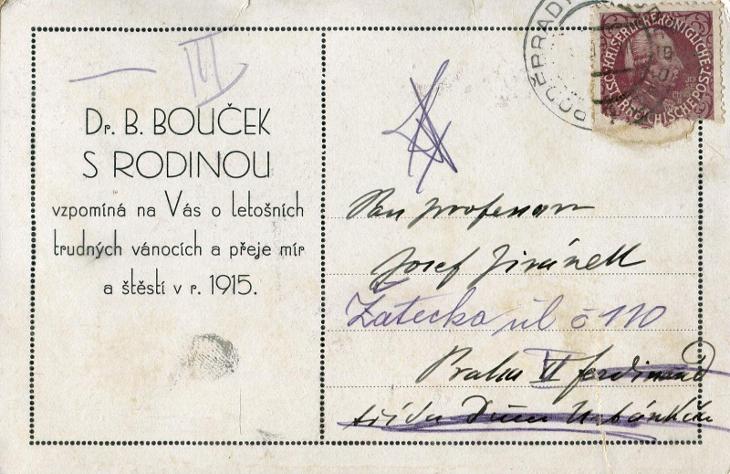 III
Dr. B. BOUČEK
S RODINOU
vzpomíná na Vás o letošních
trudných vánocích a přeje mír
a štěstí v r. 1915.
PODĚBRADY
KAISERLICHE KÖNIGLICHE
ÖSTERREICHISCHE POST
Pan professor
Josef Jiránek
Žatecka úl č 110
Praha VI Ferdinand
třída Dům Urbánkův